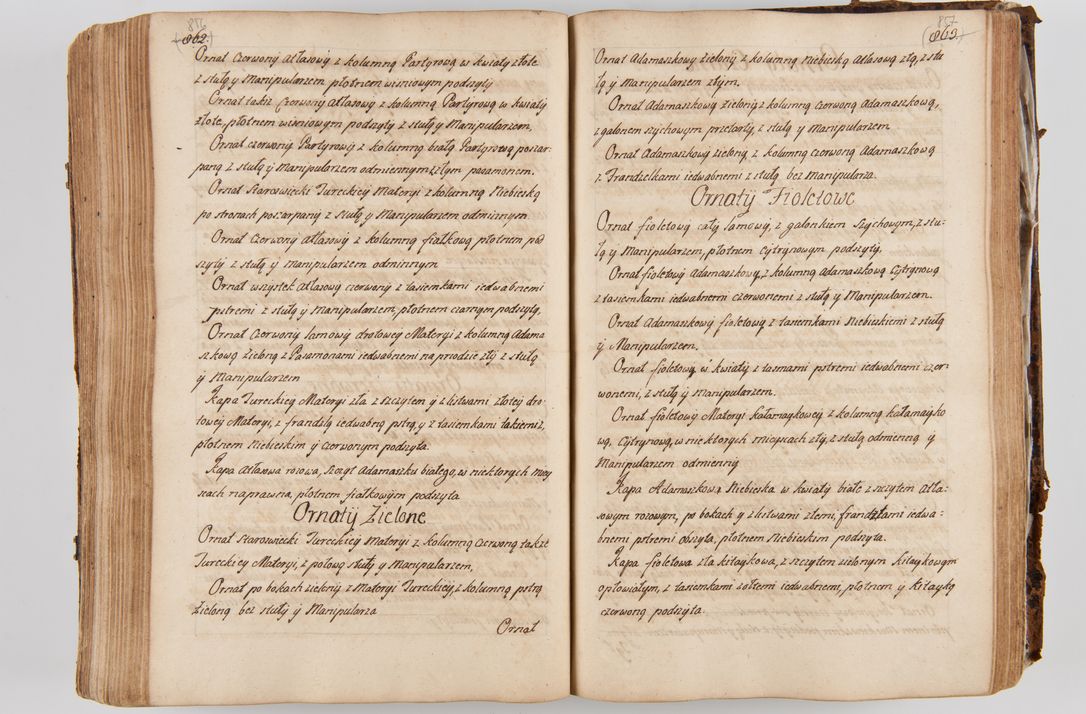 856
862.
Ornat Czerwony Atłasowy z kolumną Partyrową w kwiaty złote
z stułą y Manipularzem płotnem wisniowym podszyty
Ornat takze Czerwony Atłasowy z kolumną Partyrową w kwiaty
złote, płotnem wisniowym podszyty z stułą y Manipularzem,
Ornat czerwony Partyrowy z kolumną białą Partyrową poszar-
paną z stułą y Manipularzem odmiennym złym pasamonem.
Ornat Staroswiecki Tureckiey Materyi z kolumną Niebieską
po stronach poszarpany z stułą y Manipularzem odminnym
Ornat Czerwony Atłasowy z kolumną fiałkową, płotnem pod
szyty z stułą y manipularzem odminnym
Ornat wszystek Atłasowy czerwony z tasiemkami iedwabnemi
pstremi z stułą y Manipularzem, płotnem czarnym podszyty,
Ornat Czerwony lamowy drotowey Materyi z kolumną Adama
szkową zieloną z Pasamonami iedwabnemi na przodzie zły z stułą
y Manipularzem
Kapa Tureckiey Materyi zła z szczytem y z listwami złotey dro-
towey Materyi, z frandzlą iedwabną pstrą, y z tasiemkami takiemiz,
płotnem Niebieskim y Czerwonym podszyta.
Kapa Atłasowa rozowa, szczyt Adamaszku białego, w niektorych miey
scach naprawna, płotnem fiałkowym podszyta
Ornaty Zielone
Ornat Staroswiecki Tureckiey Materyi z kolumną Czerwoną takze
Tureckiey Materyi, z połową stuły y Manipularzem,
Ornat po bokach zielony z Materyi Tureckiey, z kolumną pstrą
zieloną bez stuły y Manipularza
Ornat
857
863
Ornat Adamaszkowy zielony z kolumną Niebieską Atłasową złą, z stu
łą y Manipularzem złym.
Ornat Adamaszkowy zielony z kolumną Czerwoną Adamaszkową,
z galonem szychowym przetarty, z stułą y Manipularzem
Ornat Adamaszkowy zielony z kolumną czerwoną Adamaszkową
z Frandzelkami iedwabnemi z stułą bez Manipularza.
Ornaty Fioletowe
Ornat fioletowy cały lamowy, z galonkiem szychowym, z stu-
łą y Manipularzem, płotnem Cytrynowym podszyty.
Ornat fioletowy Adamaszkowy, z kolumną Adamaszkową Cytrynową
z tasiemkami iedwabnemi czerwonemi z stułą y Manipularzem.
Ornat Adamaszkowy fioletowy z tasiemkami Niebieskiemi z stułą
y Manipularzem.
Ornat fioletowy w kwiaty z tasmami pstremi iedwabnemi czer-
wonemi, z stułą y manipularzem.
Ornat fioletowy Materyi kałamaykowey z kolumną kałamayko
wą, Cytrynową, w niektorych mieyscach zły, z stułą odmienną y
Manipularzem odmiennym
Kapa Adamaszkowa Niebieska w kwiaty białe z szczytem Atła-
sowym rozowym, po bokach y z listwami złemi, frandzlami iedwa-
bnemi pstremi obszyta, płotnem Niebieskim podszyta.
Kapa fioletowa zła kitaykowa, z szczytem zielonym kitaykowym
opłowiałym, z tasiemkami zołtemi iedwabnemi, płotnem y kitayką
czerwoną podszyta.